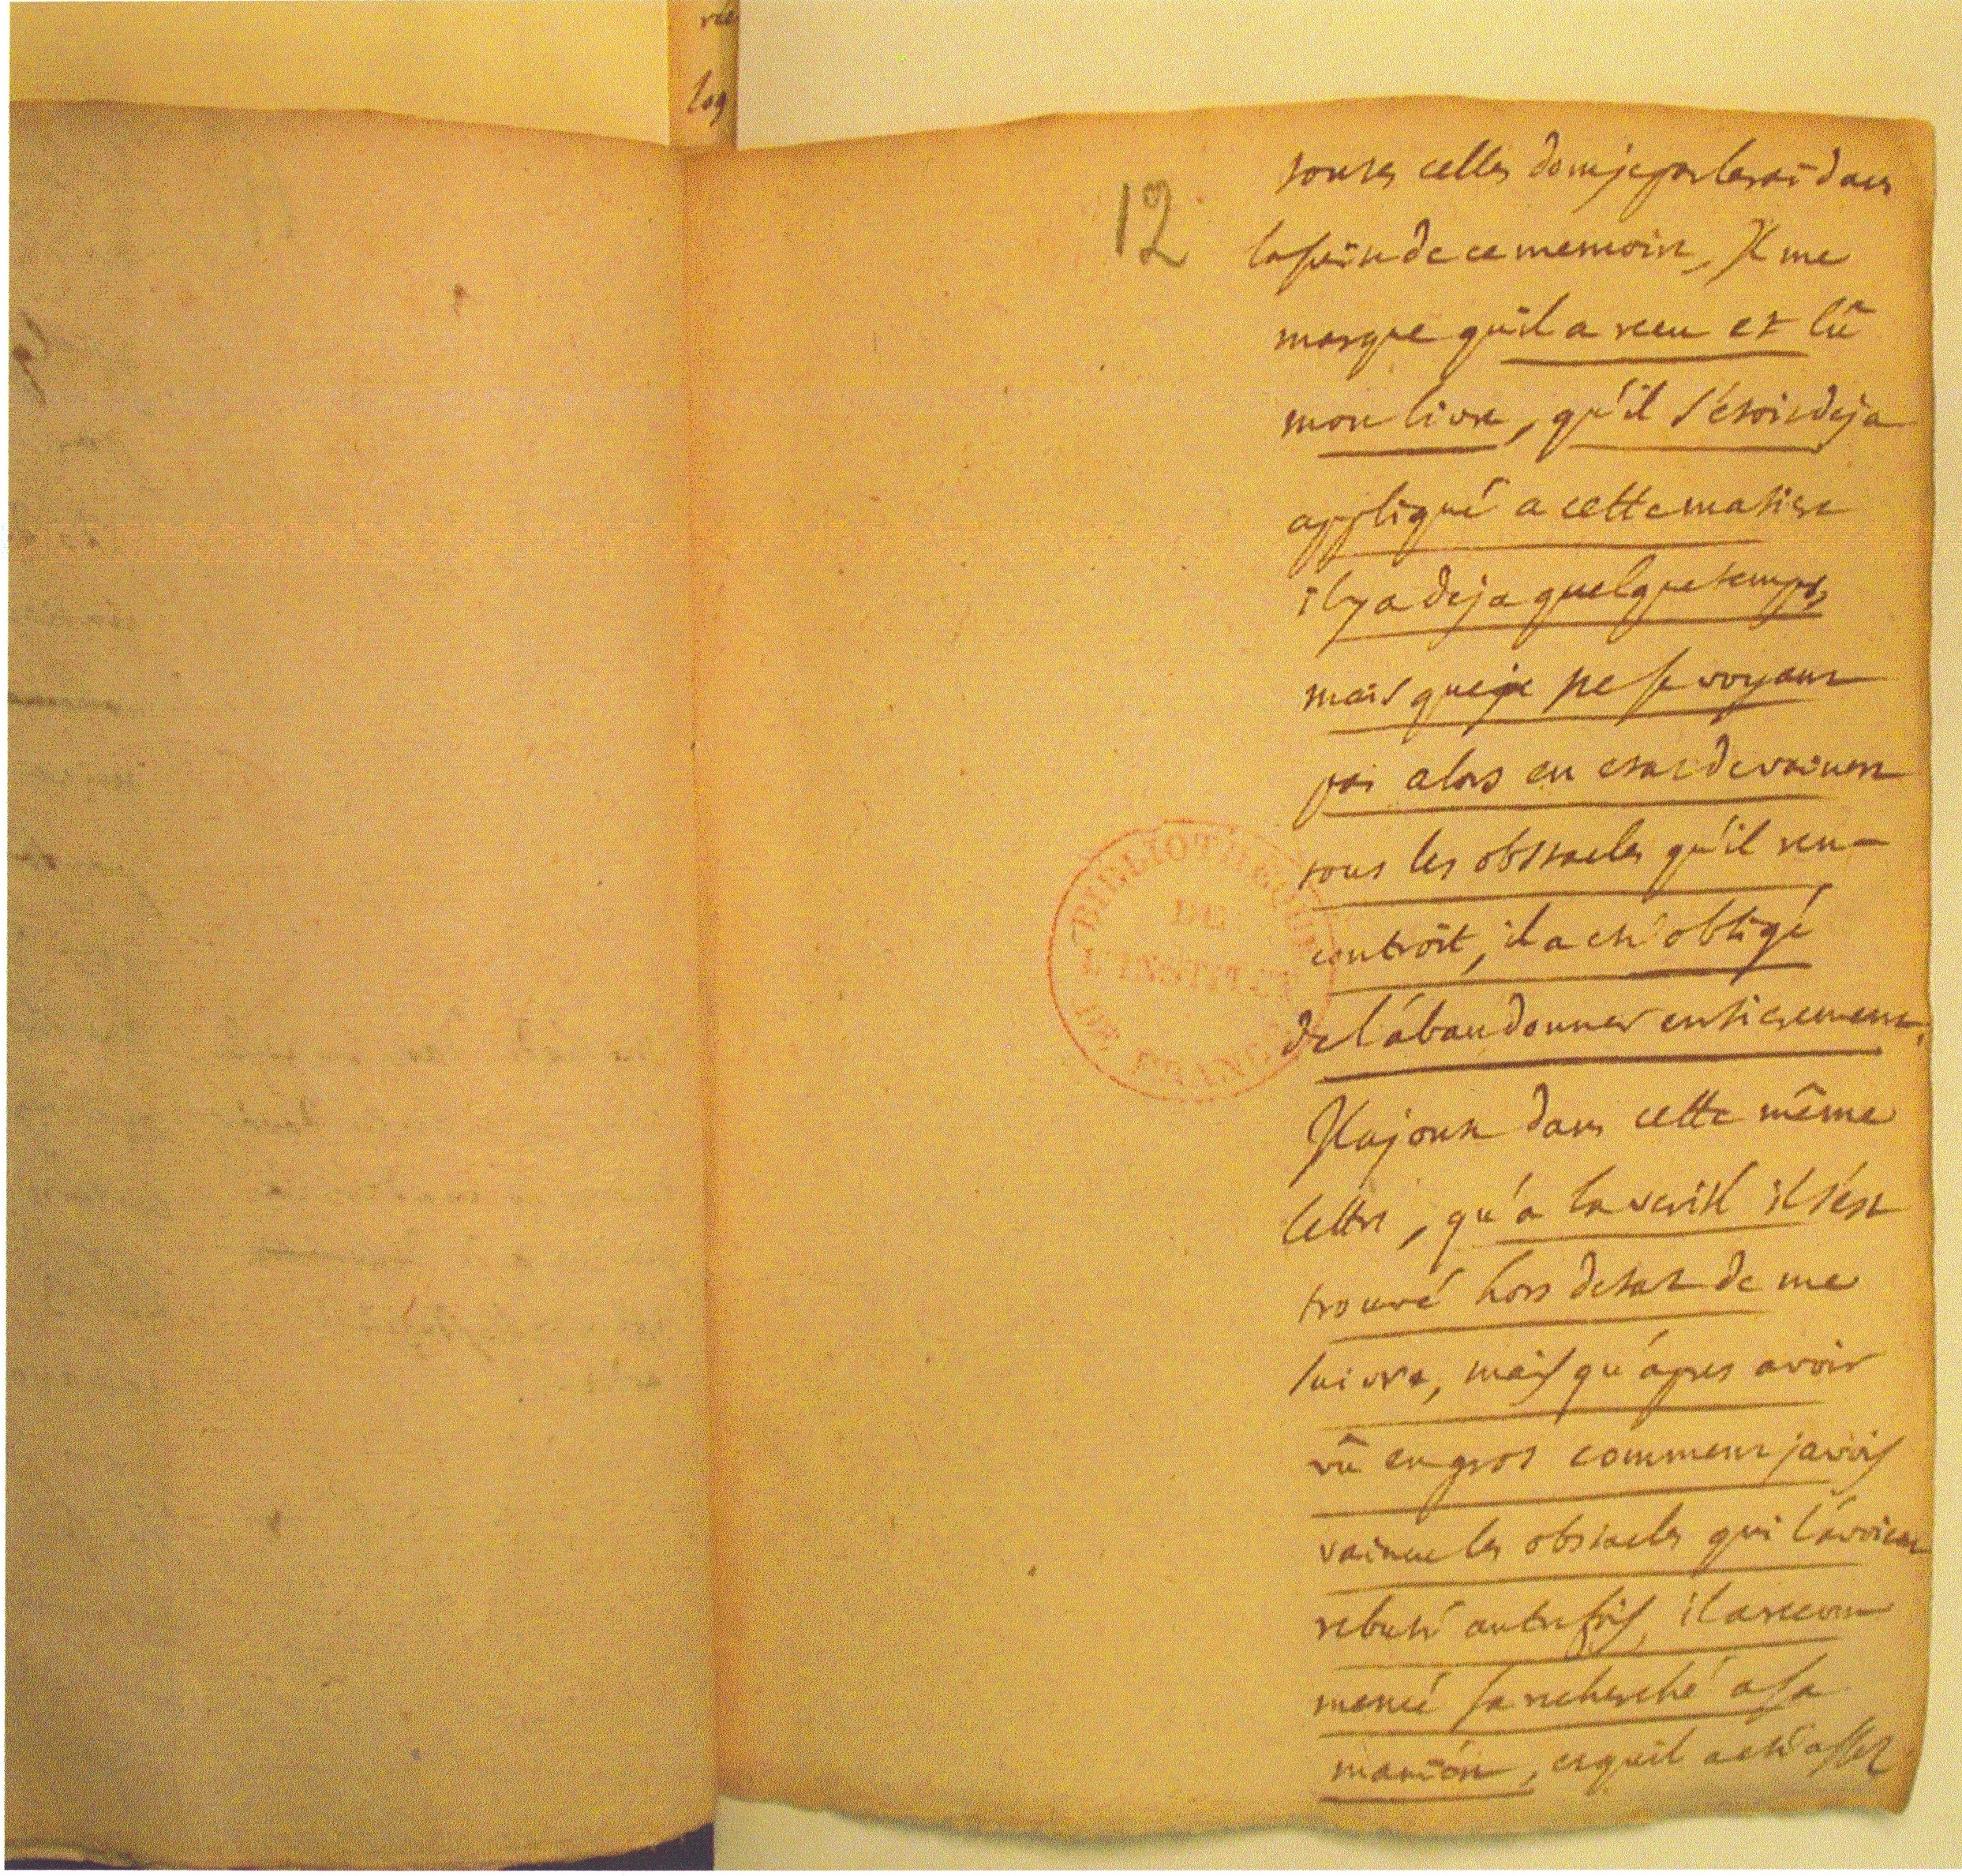 rée
log
12
toutes celles dont je parlerai dans
la suite de ce memoire, Il me
marque qu'il a receu et lû
mon livre, qu'il s'étoit deja
appliqué a cette matiere
il y a deja quelque temps,
mais que ne se voyant
pas alors en etat de vaincre
tous les obstacles qu'il ren-
controit, il a eté obligé
de l'ábandonner entierement.
Il ajoute dans cette même
lettre, qu'a la verité il s'est
trouvé hors detat de me
suivre, mais qu'ápres avoir
vû en gros comment javois
vaincu les obstacles qui l'ávoient
rebuté autrefois, il a recom
mencé sa recherche a sa
maniére, et quil a eté assez
BIBLIOTHEQUE
DE
L'INSTITUT
DE FRANCE